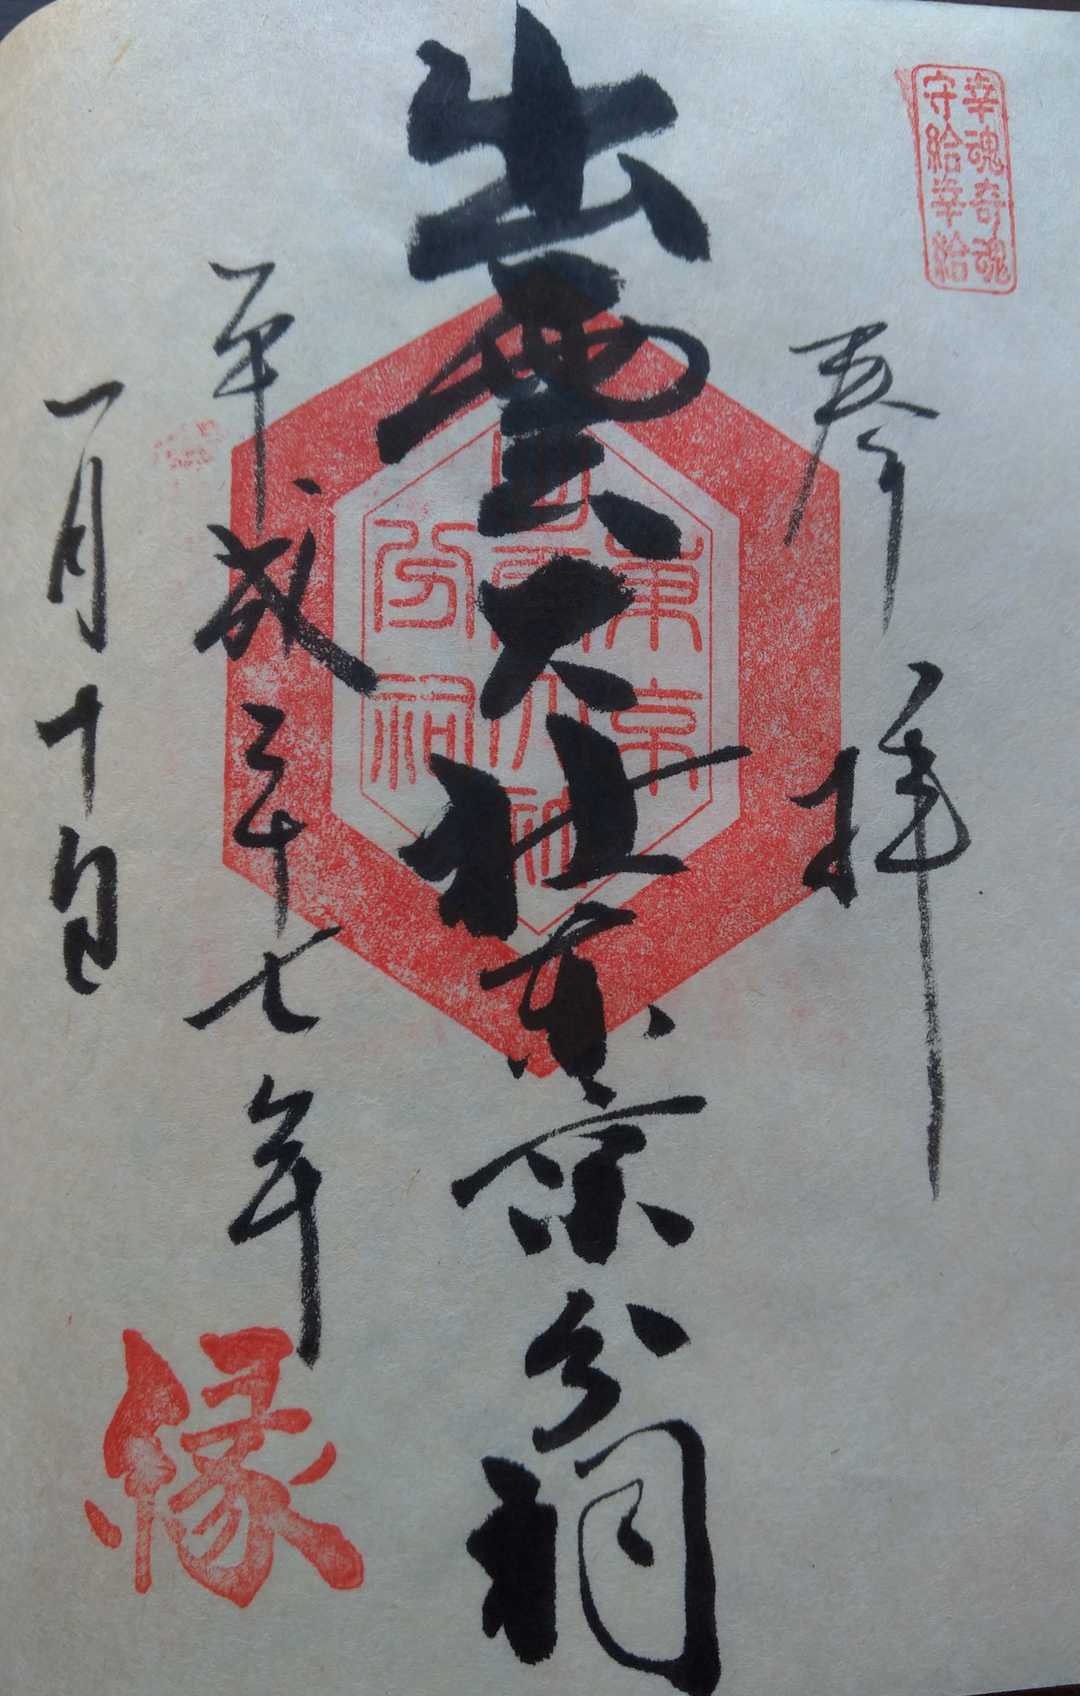 幸魂奇魂
守給幸給
奉拝
出雲大社東京分祠
東京
分祠
平成二十七年
一月十日
縁